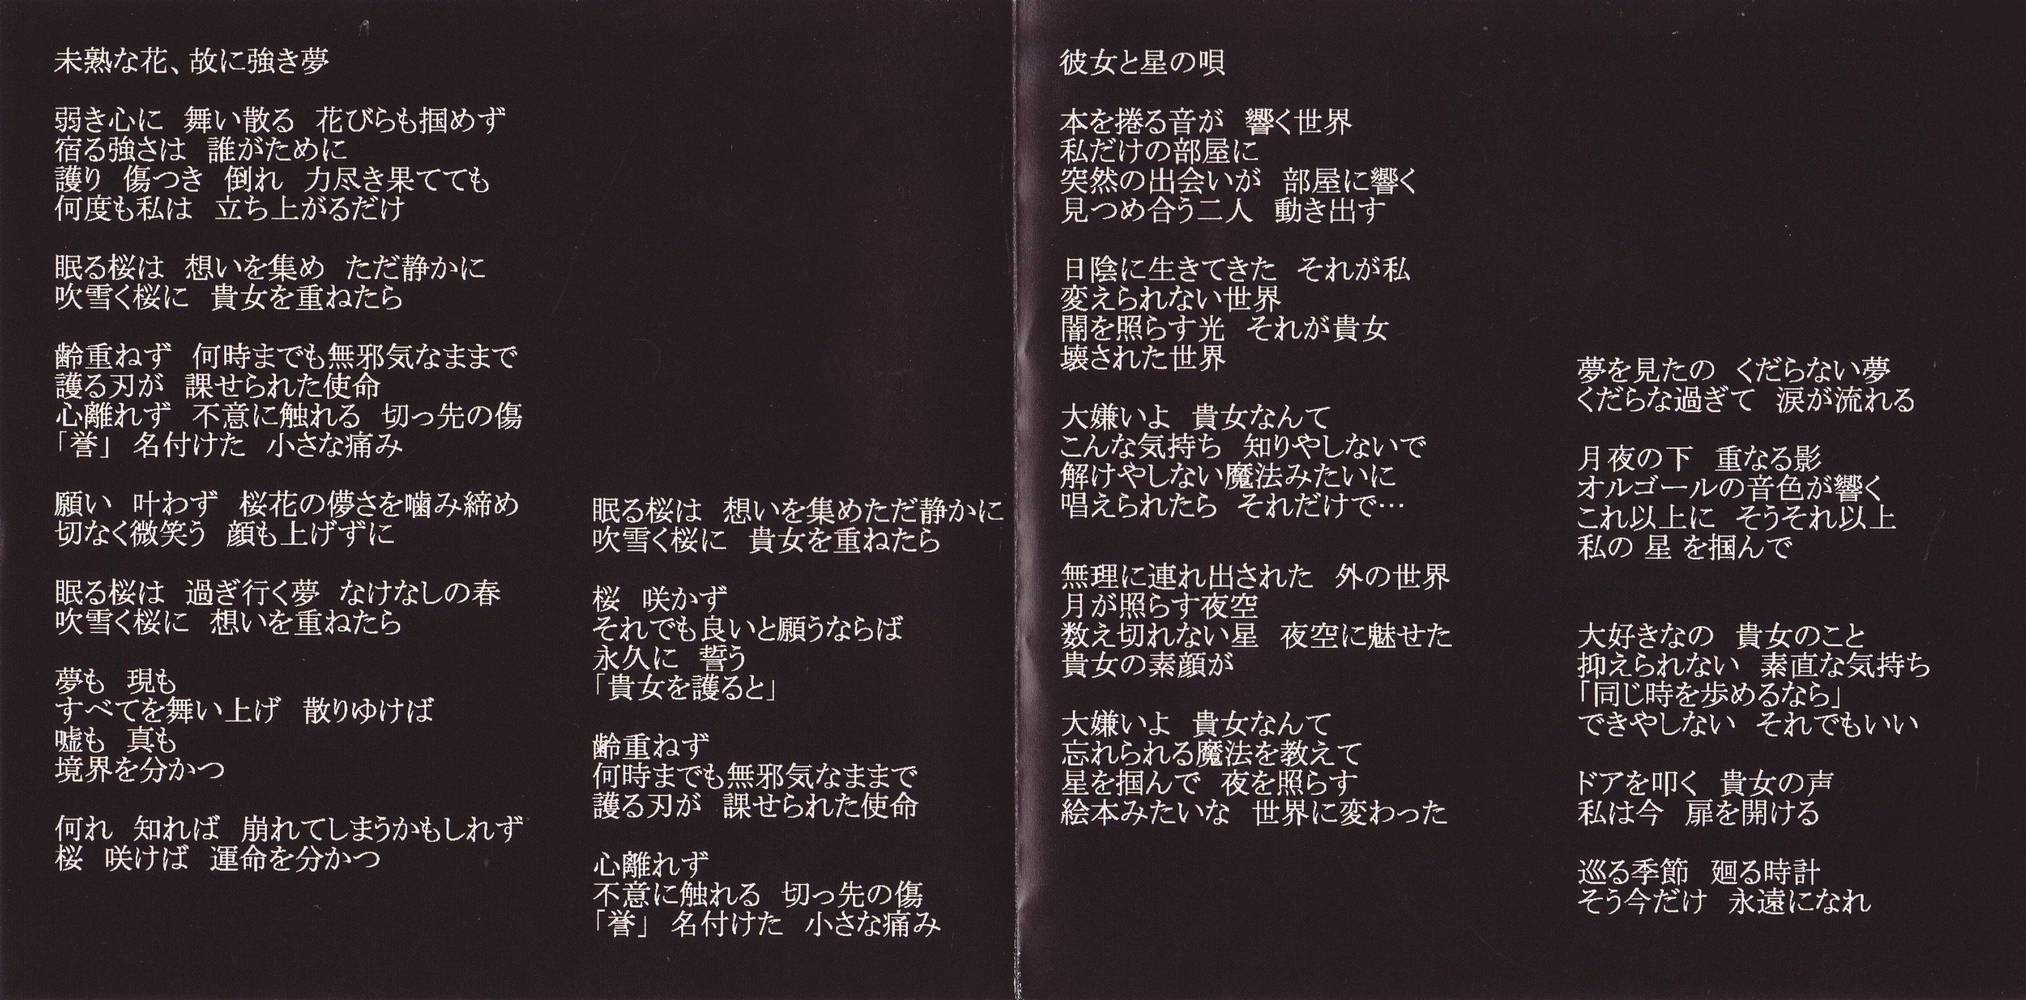 未熟な花、故に強き夢
弱き心に　舞い散る　花びらも掴めず
宿る強さは　誰がために
護り　傷つき　倒れ　力尽き果てても
何度も私は　立ち上がるだけ
眠る桜は　想いを集め　ただ静かに
吹雪く桜に　貴女を重ねたら
齢重ねず　何時までも無邪気なままで
護る刃が　課せられた使命
心離れず　不意に触れる　切っ先の傷
「誉」 名付けた　小さな痛み
願い　叶わず　桜花の儚さを噛み締め
切なく微笑う　顔も上げずに
眠る桜は　過ぎ行く夢　なけなしの春
吹雪く桜に　想いを重ねたら
夢も　現も
すべてを舞い上げ　散りゆけば
嘘も　真も
境界を分かつ
何れ　知れば　崩れてしまうかもしれず
桜　咲けば　運命を分かつ
眠る桜は　想いを集めただ静かに
吹雪く桜に　貴女を重ねたら
桜　咲かず
それでも良いと願うならば
永久に　誓う
「貴女を護ると」
齢重ねず
何時までも無邪気なままで
護る刃が　課せられた使命
心離れず
不意に触れる　切っ先の傷
「誉」 名付けた　小さな痛み
彼女と星の唄
本を捲る音が　響く世界
私だけの部屋に
突然の出会いが　部屋に響く
見つめ合う二人　動き出す
日陰に生きてきた　それが私
変えられない世界
闇を照らす光　それが貴女
壊された世界
大嫌いよ　貴女なんて
こんな気持ち　知りやしないで
解けやしない魔法みたいに
唱えられたら　それだけで…
無理に連れ出された　外の世界
月が照らす夜空
数え切れない星　夜空に魅せた
貴女の素顔が
大嫌いよ　貴女なんて
忘れられる魔法を教えて
星を掴んで　夜を照らす
絵本みたいな　世界に変わった
夢を見たの　くだらない夢
くだらな過ぎて　涙が流れる
月夜の下　重なる影
オルゴールの音色が響く
これ以上に　そうそれ以上
私の 星 を掴んで
大好きなの　貴女のこと
抑えられない　素直な気持ち
「同じ時を歩めるなら」
できやしない　それでもいい
ドアを叩く　貴女の声
私は今　扉を開ける
巡る季節　廻る時計
そう今だけ　永遠になれ